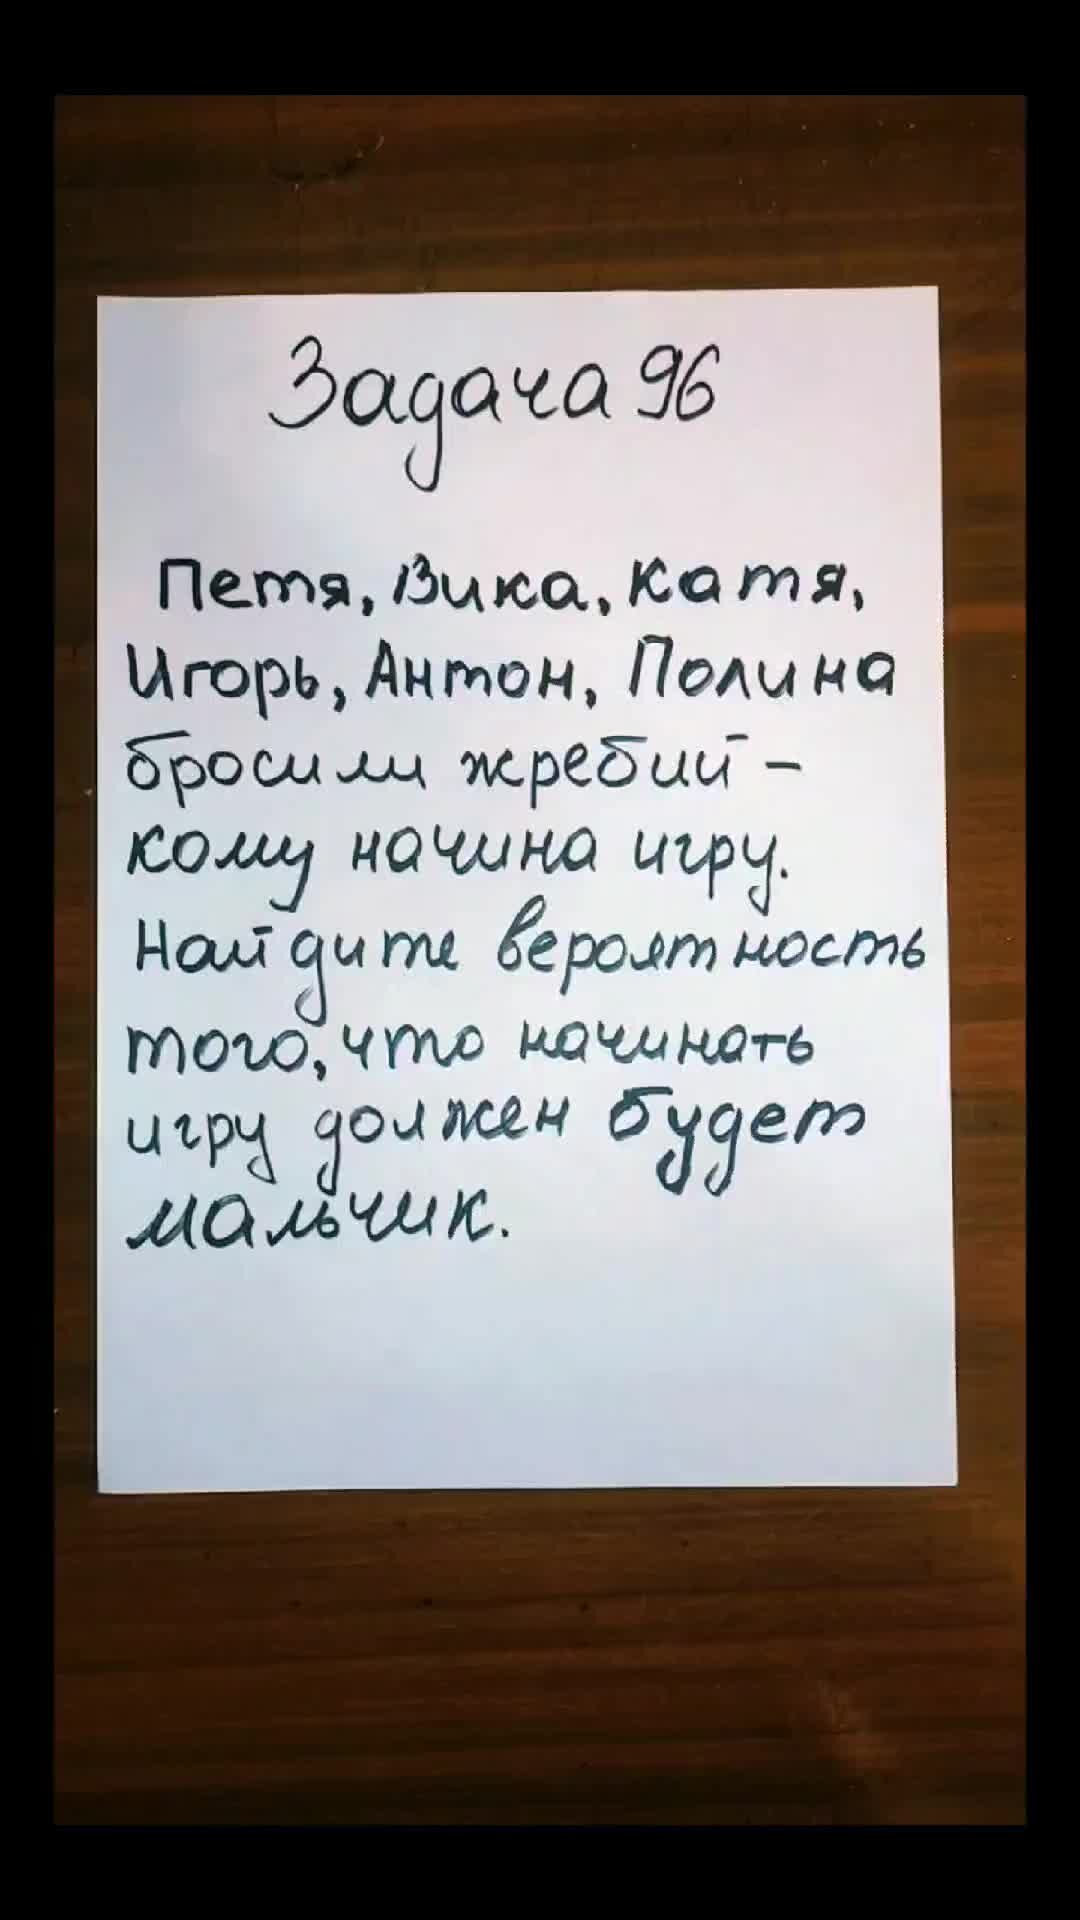 Задача 96
Петя, Вика, Катя,
Игорь, Антон, Полина
бросили жребий -
кому начина игру.
Найдите вероятность
того, что начинать
игру должен будет
мальчик.